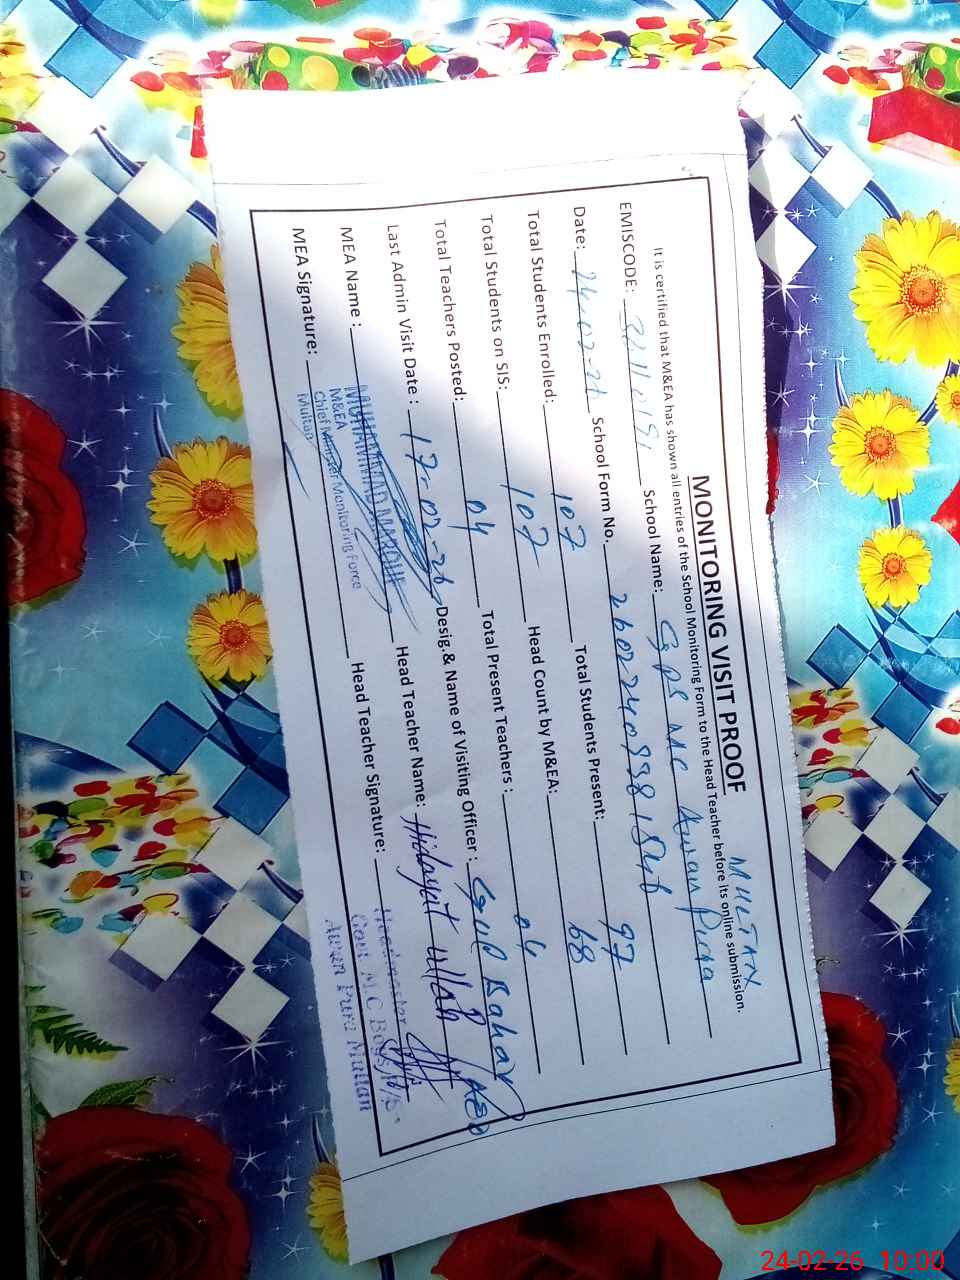 MONITORING VISIT PROOF
MULTAN
It is certified that M&EA has shown all entries of the School Monitoring Form to the Head Teacher before its online submission.
EMISCODE: School Name: GPS MC Awan Pura
Date: 24-02-26 School Form No. 
Total Students Enrolled: 107 Total Students Present: 97
Total Students on SIS: 107 Head Count by M&EA: 68
Total Teachers Posted: 04 Total Present Teachers : 04
Last Admin Visit Date : 17-02-26 Desig,& Name of Visiting Officer : Gul Bahar AEO
MEA Name : MUHAMMAD MAROUF Head Teacher Name: Hidayat ullah
MEA Signature: Head Teacher Signature:
M&EA
Chief Minister Monitoring Force
Multan
Headmaster
Govt. M.C Boys P/S
Awan Pura Multan
24-02-26 10:00